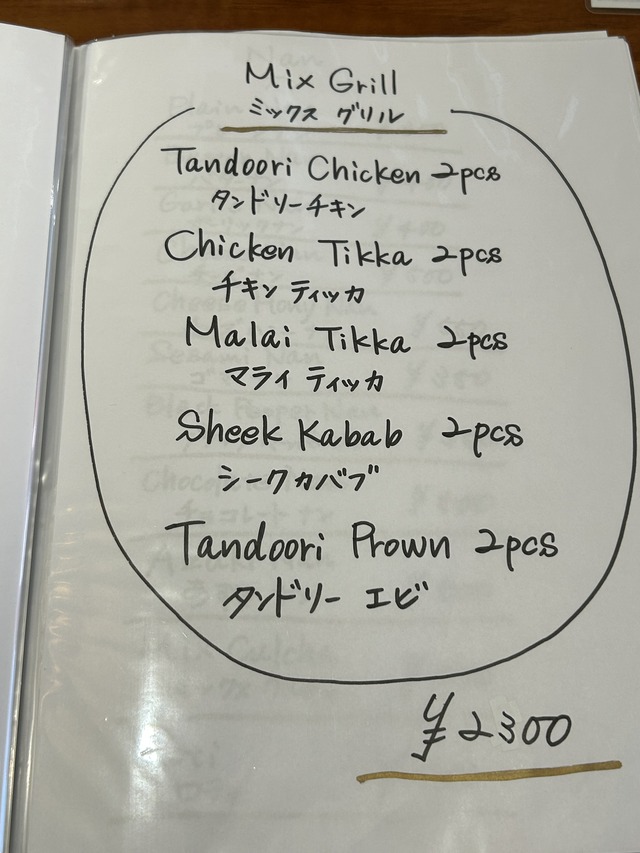 Mix Grill
ミックス グリル
Tandoori Chicken 2pcs
タンドリーチキン
Chicken Tikka 2pcs
チキン ティッカ
Malai Tikka 2pcs
マライ ティッカ
Sheek Kabab 2pcs
シークカバブ
Tandoori Prown 2pcs
タンドリー エビ
¥2300